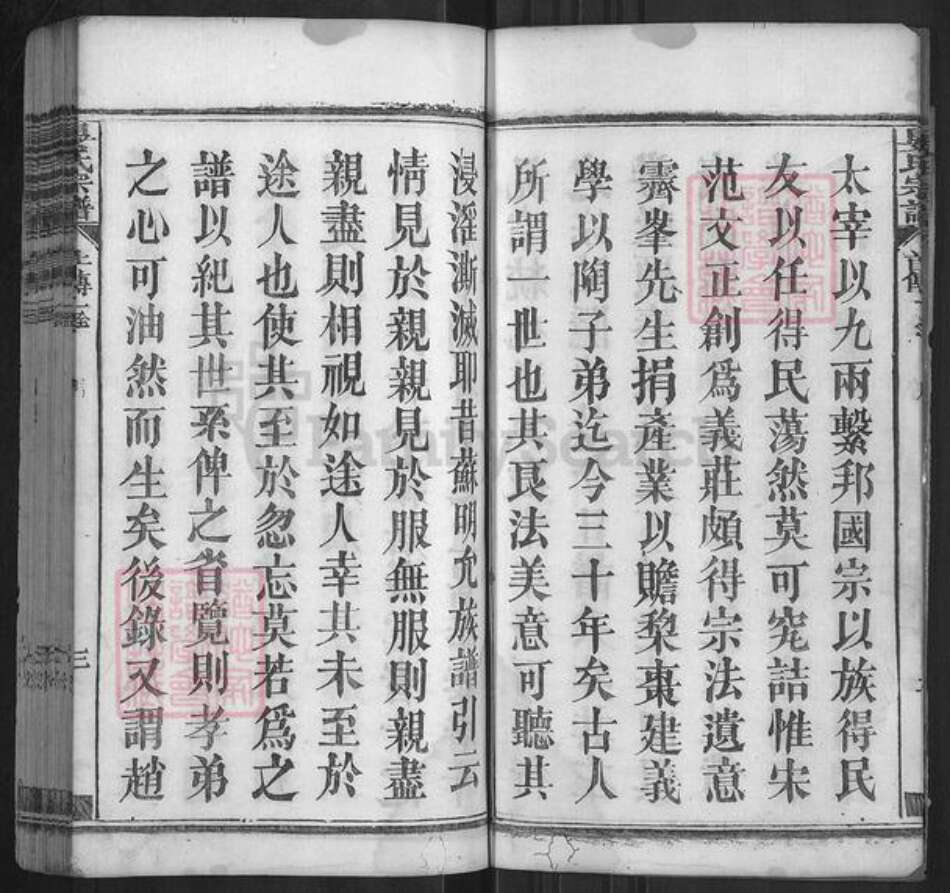 太宰以九兩繫邦國宗以族得民
友以任得民蕩然莫可究詰惟宋
范文正創爲義莊頗得宗法遺意
霽峯先生捐產業以贍梨棗建義
學以陶子弟迄今三十年矣古人
所謂一世也其良法美意可聽其
浸淫澌滅耶昔蘇明允族譜引云
情見於親親見於服無服則親盡
親盡則相視如途人幸其未至於
途人也使其至於忽忘莫若爲之
譜以紀其世系俾之省覽則孝弟
之心可油然而生矣後錄又謂趙
氏宗譜
三
FamilySearch